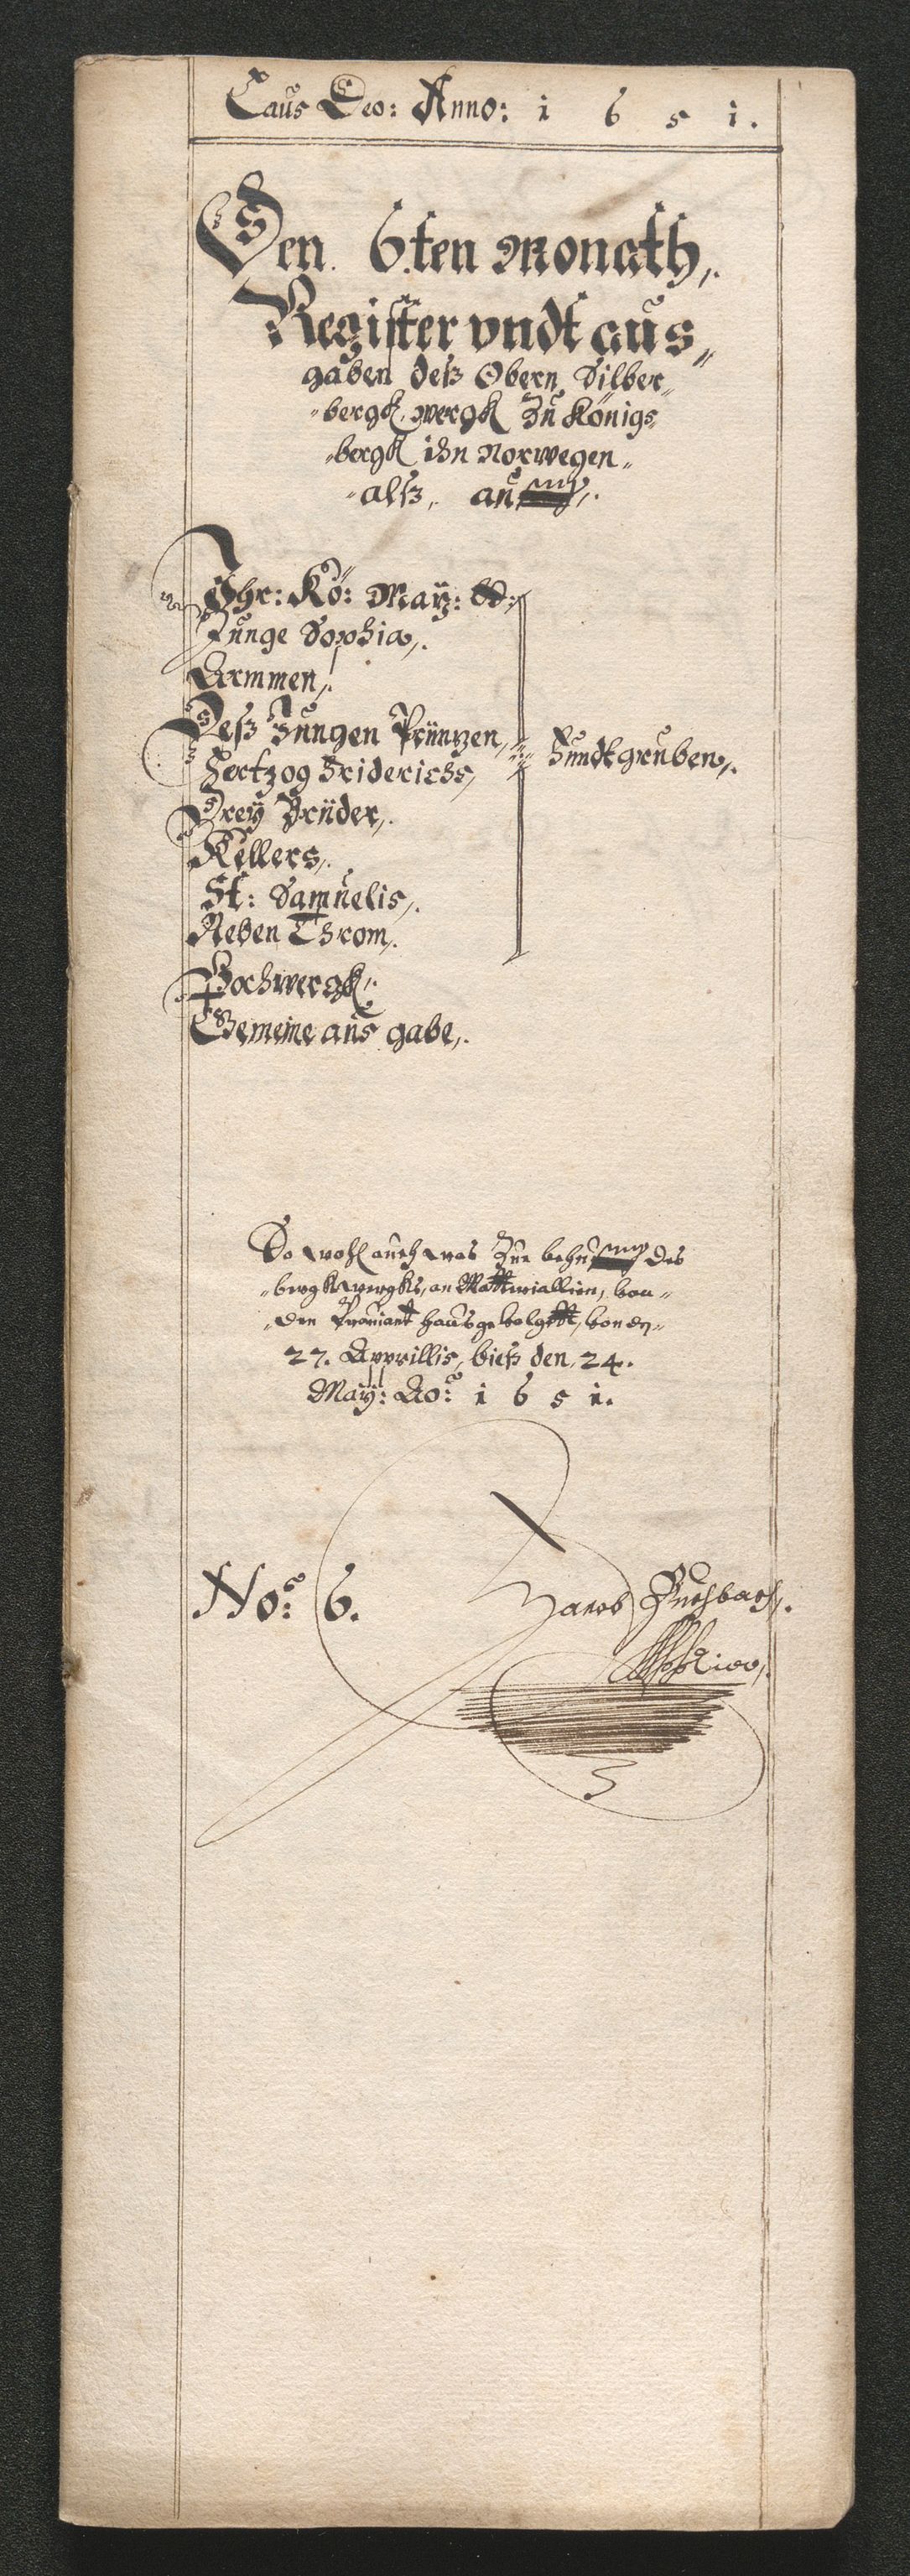 Laus Deo: Anno: 1 6 5 1.
Den 6.ten Monath,.
Register vndt aus„
gaben deß Obern Silber„
„bergk wergk Zu Königs„
„bergk ihn Norwegen„
„alß, auff,.
Ihr: Kö: May:
Junge Sophia,.
Armmen,.
Deß Jungen Printzen,
Hertzog Friderichs, Fundtgruben,.
Drey Brüder,.
Kellers,.
St: Samuelis,.
Neben Throm,.
Pochwergk,.
Gemeine aus gabe,.
So wohl auch was Zur behuff des
„bergkwergks, an Matteriallien, von„
„den Proviant haus gevolgtt, von den„
27. Apprillis, bieß den, 24.
May: Ao: 1 6 5 1.
No: 6.
Jacob Buchbach,.